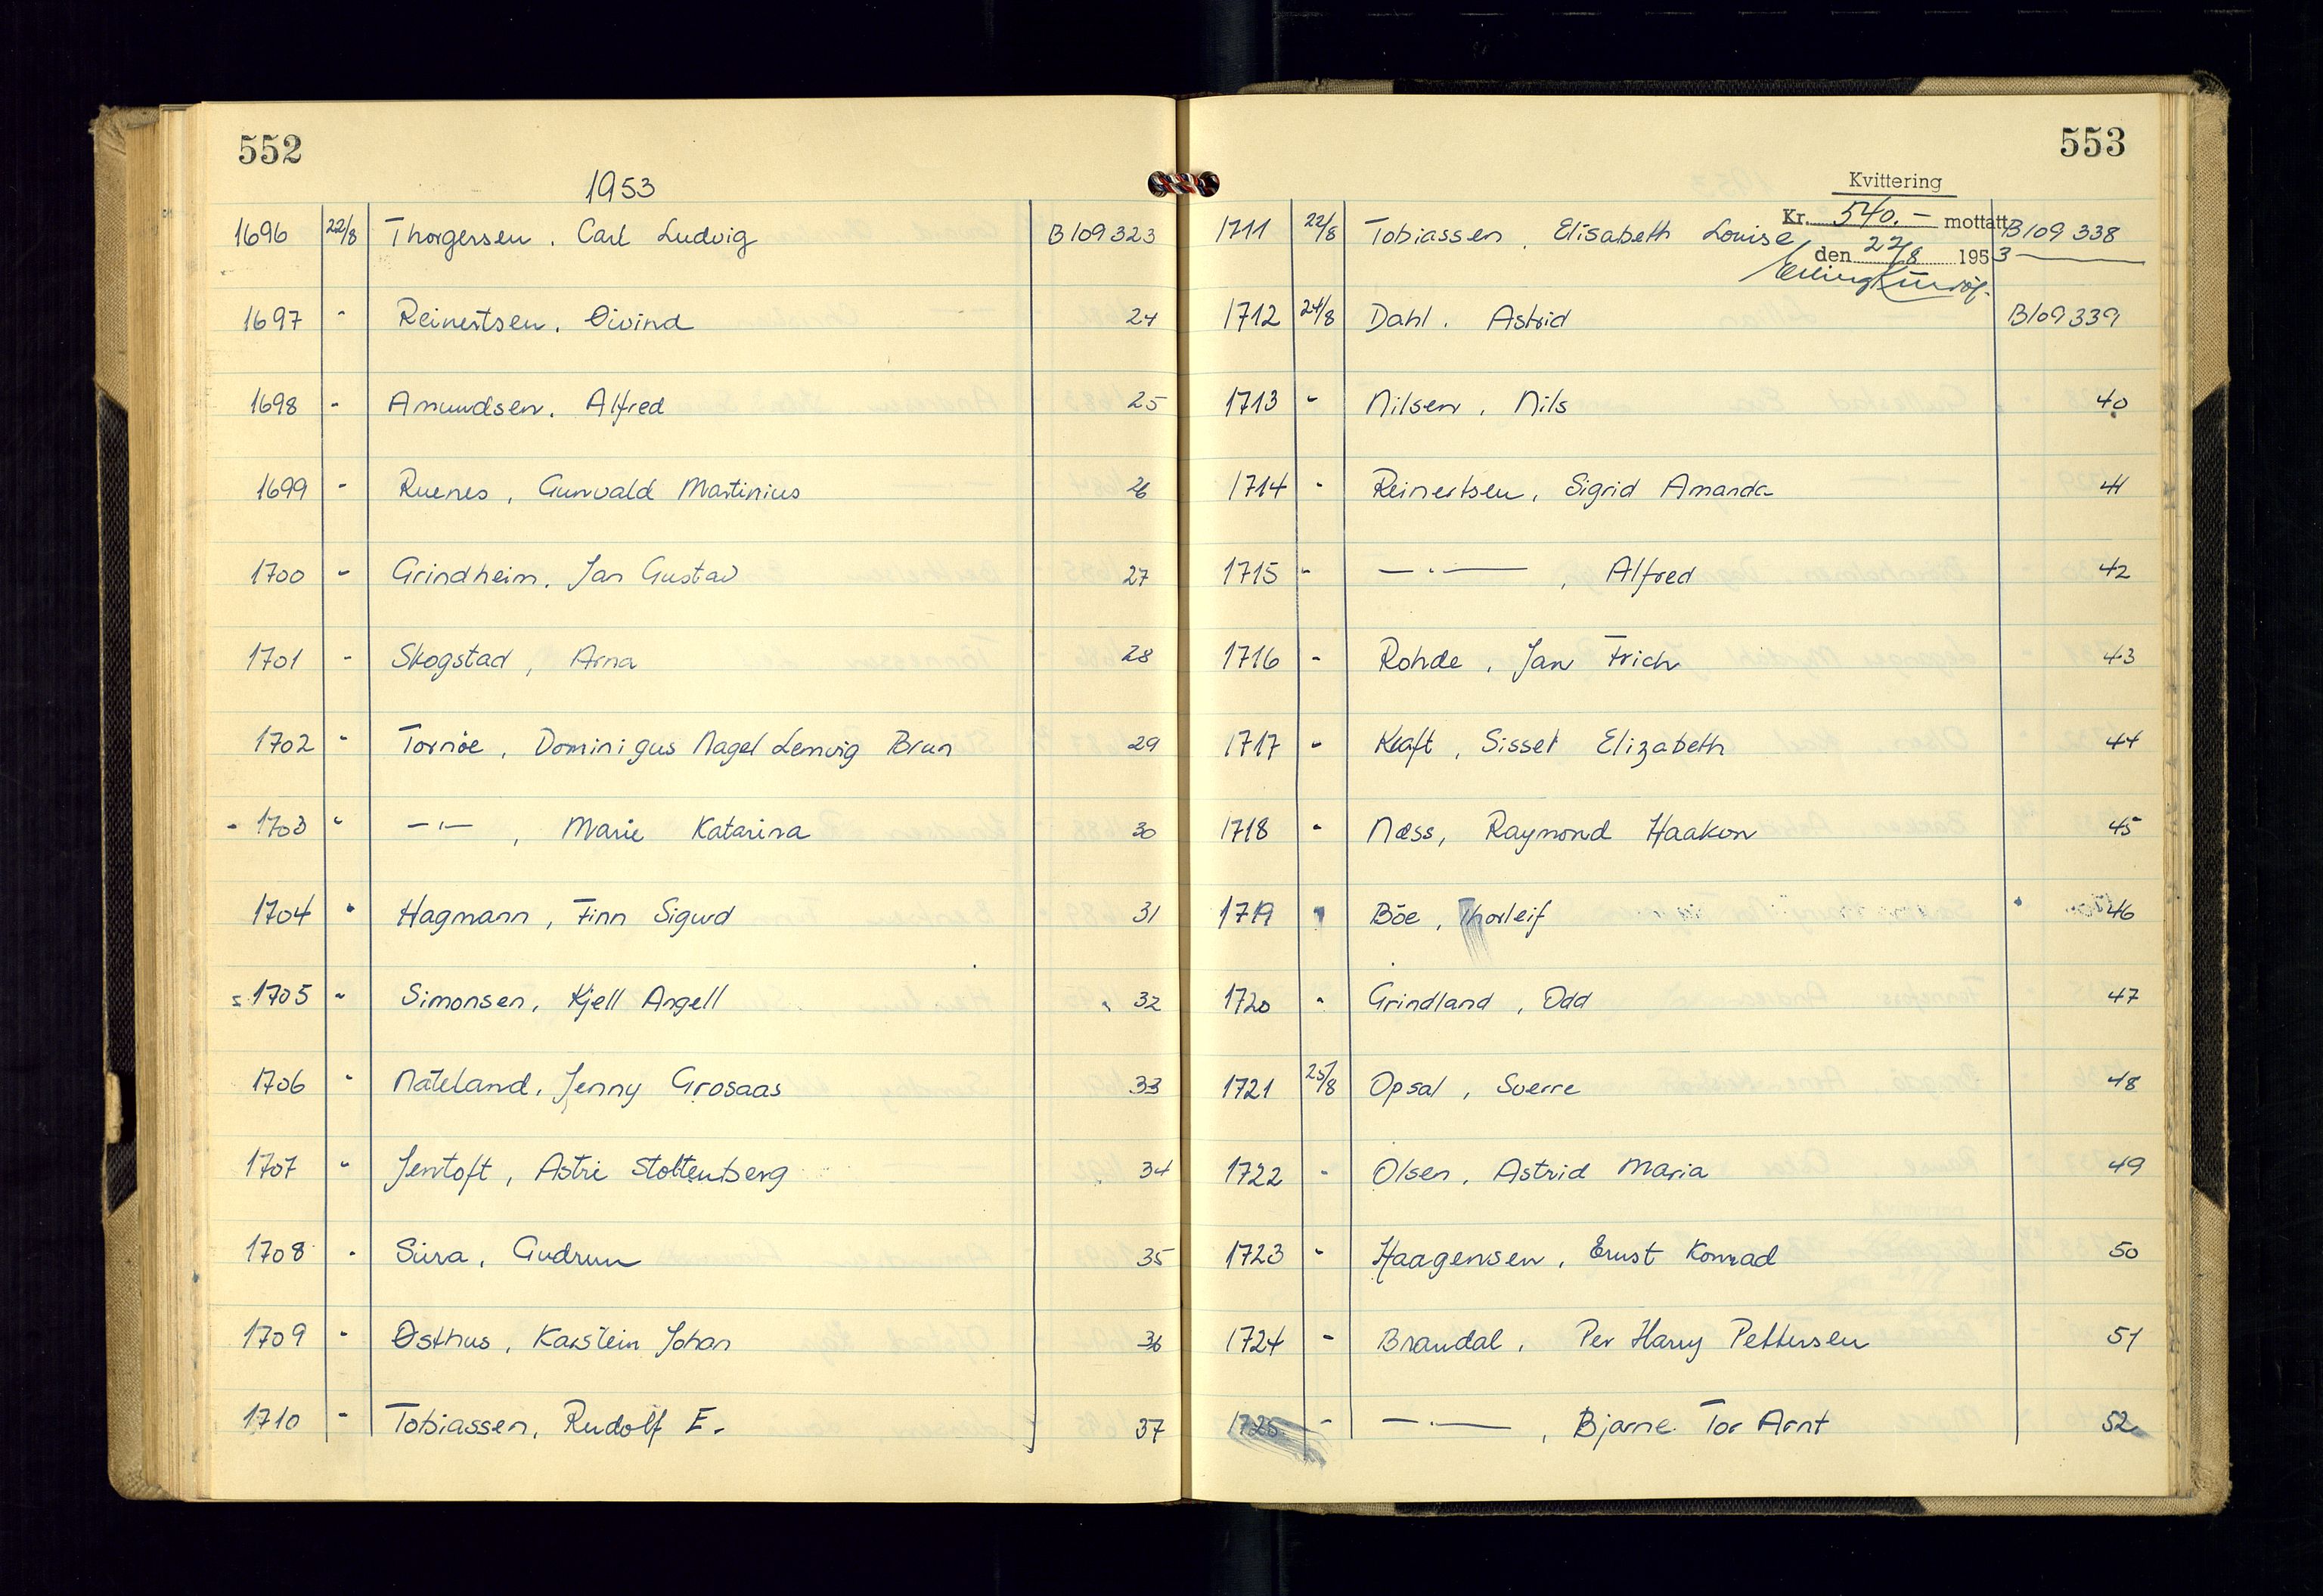 552
1953
1696 22/8 Thorgersen, Carl Ludvig B109323
1697 " Reinertsen, Øivind 24
1698 - Amundsen, Alfred 25
1699 - Ruenes, Gunvald Martinius 26
1700 - Grindheim, Jan Gustav 27
1701 - Skogstad, Arna 28
1702 " Tornöe, Dominigus Nagel Lemvig Brun 29
1703 " —"—, Marie Katarina 30
1704 " Hagmann, Finn Sigurd 31
1705 " Simonsen, Kjell Angell 32
1706 " Nateland, Jenny Grosaas 33
1707 " Jentoft, Astri Stoltenberg 34
1708 - Sira, Gudrun 35
1709 - Østhus, Karstein Johan 36
1710 - Tobiassen, Rudolf E. 37
553
Kvittering
Kr. 540.- mottatt
1711 22/8 Tobiassen, Elisabeth Louise B109338
den 22/8 1953
Erling
1712 24/8 Dahl, Astrid B109339
1713 " Nilsen, Nils 40
1714 " Reinertsen, Sigrid Amanda 41
1715 " —"—, Alfred 42
1716 - Rohde, Jan Frich 43
1717 " Kraft, Sissel Elizabeth 44
1718 " Næss, Raymond Haakon 45
1719 " Böe, Thorleif 46
1720 " Grindland, Odd 47
1721 25/8 Opsal, Sverre 48
1722 - Olsen, Astrid Maria 49
1723 " Haagensen, Ernst Konrad 50
1724 - Brandal, Per Harry Pettersen 51
1725 - —"—, Bjarne Tor Arnt 52